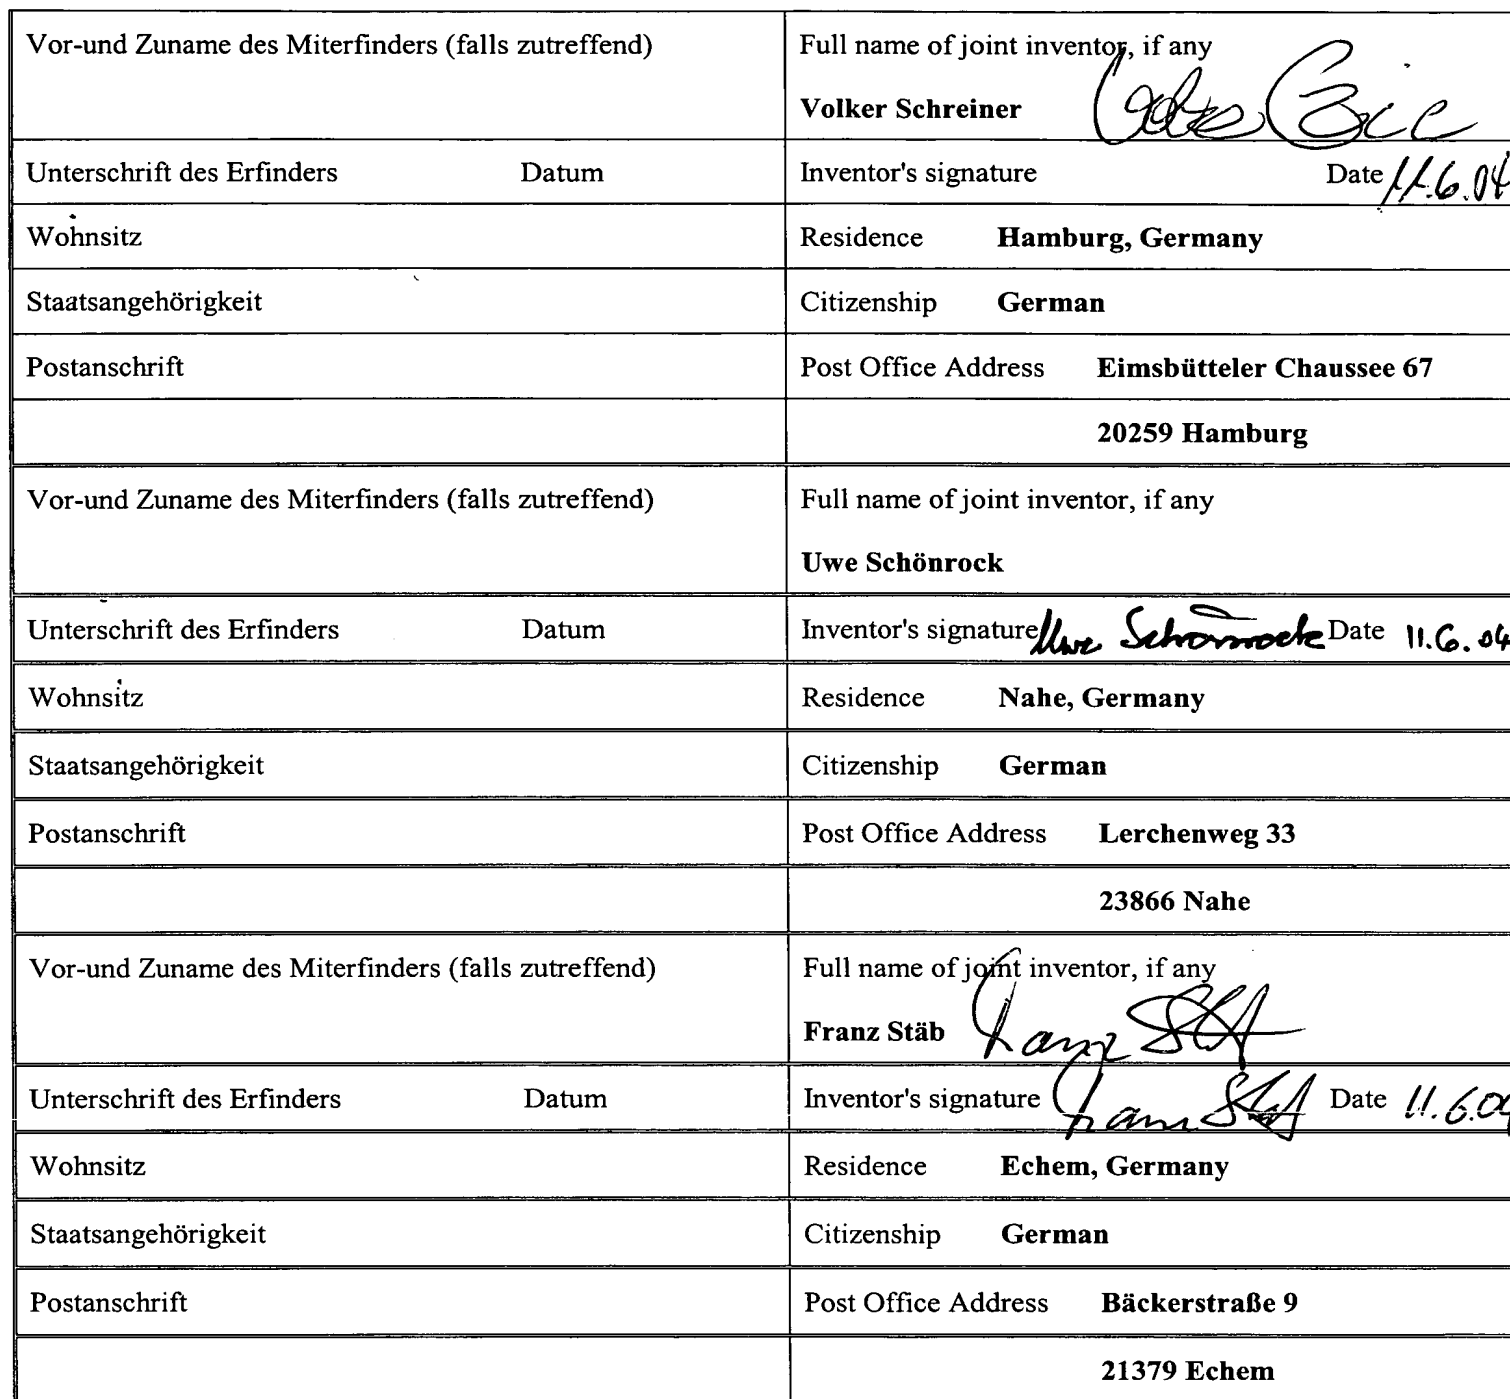 Vor-und Zuname des Miterfinders (falls zutreffend) Full name of joint inventor, if any
Volker Schreiner
Unterschrift des Erfinders Datum Inventor's signature Date 11.6.04
Wohnsitz Residence Hamburg, Germany
Staatsangehörigkeit Citizenship German
Postanschrift Post Office Address Eimsbütteler Chaussee 67
20259 Hamburg
Vor-und Zuname des Miterfinders (falls zutreffend) Full name of joint inventor, if any
Uwe Schönrock
Unterschrift des Erfinders Datum Inventor's signature Uwe Schönrock Date 11.6.04
Wohnsitz Residence Nahe, Germany
Staatsangehörigkeit Citizenship German
Postanschrift Post Office Address Lerchenweg 33
23866 Nahe
Vor-und Zuname des Miterfinders (falls zutreffend) Full name of joint inventor, if any
Franz Stäb Franz Stäb
Unterschrift des Erfinders Datum Inventor's signature Franz Stäb Date 11.6.04
Wohnsitz Residence Echem, Germany
Staatsangehörigkeit Citizenship German
Postanschrift Post Office Address Bäckerstraße 9
21379 Echem